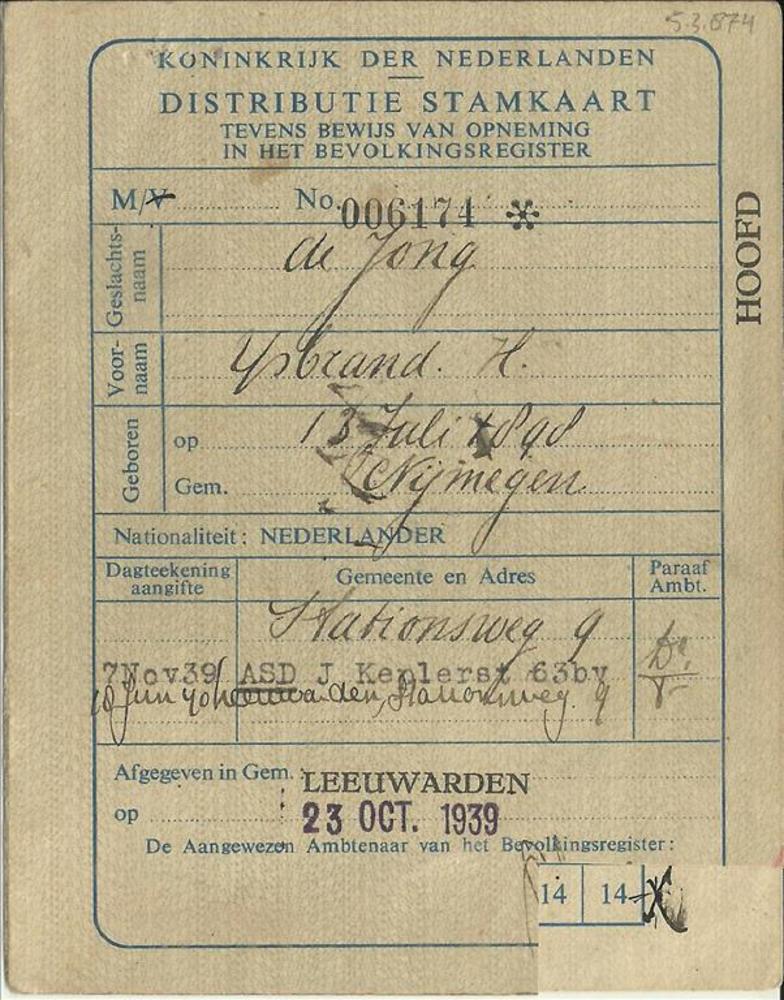 5.3.874
KONINKRIJK DER NEDERLANDEN
DISTRIBUTIE STAMKAART
TEVENS BEWIJS VAN OPNEMING
IN HET BEVOLKINGSREGISTER
M/V No. 006174 *
HOOFD
Geslachts-naam de Jong
Voor-naam Ysbrand. H.
Geboren op 13 Juli 1898
Gem. Nijmegen
Nationaliteit: NEDERLANDER
Dagteekening aangifte Gemeente en Adres Paraaf Ambt.
Stationsweg 9
7Nov39 ASD J Keplerst 63bv
10 Jun 40 Leeuwarden, Stationsweg 9
Afgegeven in Gem. LEEUWARDEN
op 23 OCT. 1939
De Aangewezen Ambtenaar van het Bevolkingsregister:
14 14